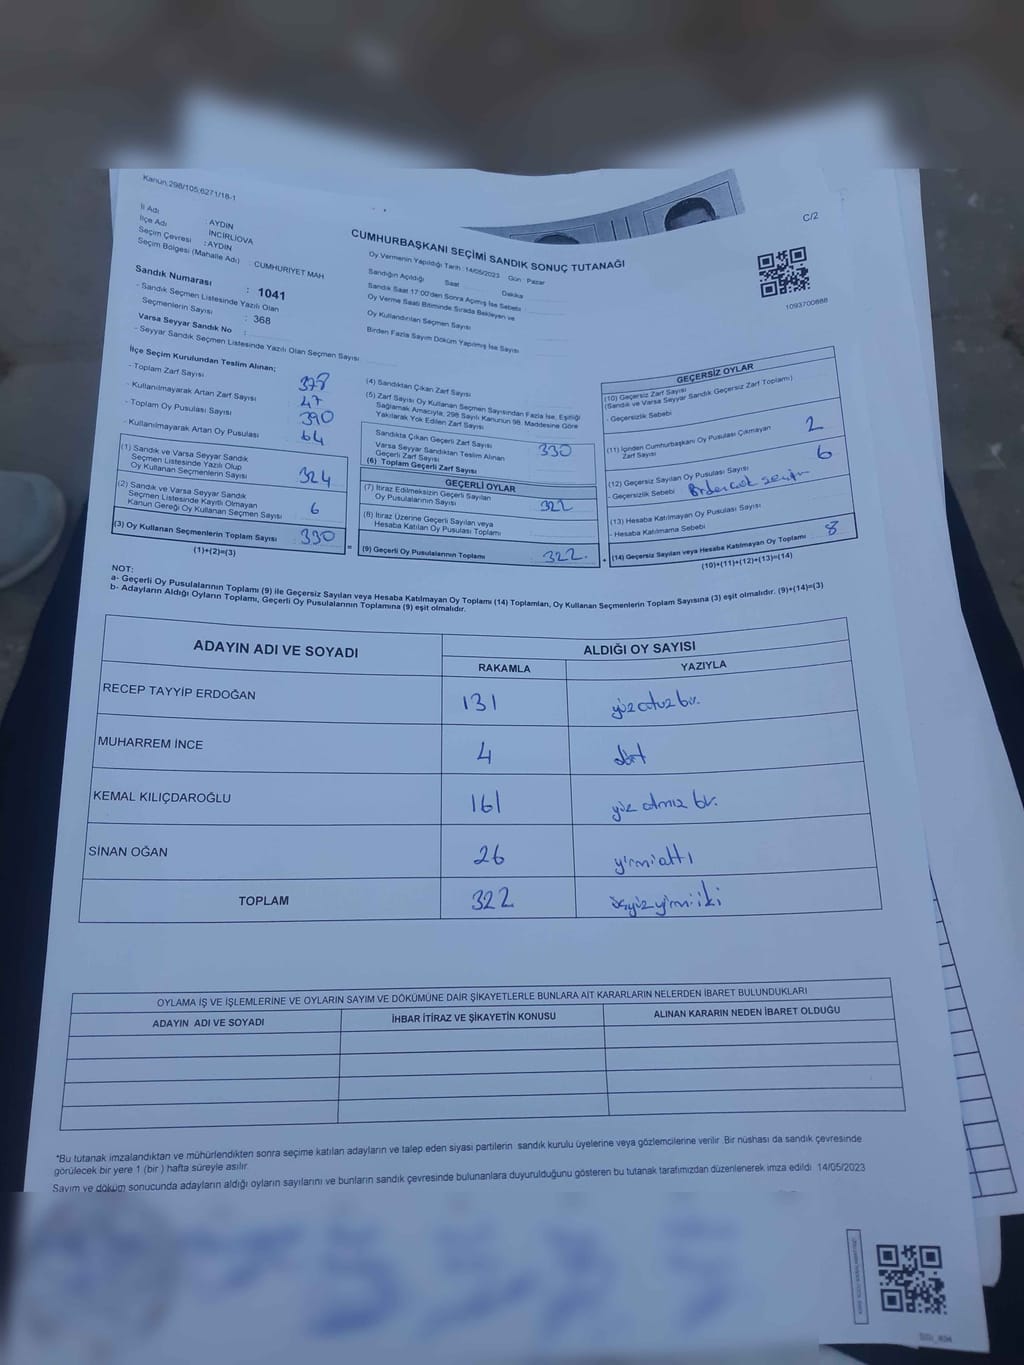 Kanun:298/105;6271/18-1
C/2
İl Adı : AYDIN
İlçe Adı : İNCİRLİOVA
Seçim Çevresi : AYDIN
Seçim Bölgesi (Mahalle Adı) : CUMHURİYET MAH
Sandık Numarası : 1041
- Sandık Seçmen Listesinde Yazılı Olan
Seçmenlerin Sayısı : 368
Varsa Seyyar Sandık No :
- Seyyar Sandık Seçmen Listesinde Yazılı Olan Seçmen Sayısı
CUMHURBAŞKANI SEÇİMİ SANDIK SONUÇ TUTANAĞI
Oy Vermenin Yapıldığı Tarih : 14/05/2023 Gün : Pazar
Sandığın Açıldığı Saat Dakika
Sandık Saat 17:00'den Sonra Açımış İse Sebebi
Oy Verme Saati Bitiminde Sırada Bekleyen ve
Oy Kullandırılan Seçmen Sayısı
Birden Fazla Sayım Döküm Yapılmış İse Sayısı
1093700888
İlçe Seçim Kurulundan Teslim Alınan;
- Toplam Zarf Sayısı 378
- Kullanılmayarak Artan Zarf Sayısı 47
- Toplam Oy Pusulası Sayısı 390
- Kullanılmayarak Artan Oy Pusulası 64
(1) Sandık ve Varsa Seyyar Sandık
Seçmen Listesinde Yazılı Olup
Oy Kullanan Seçmenlerin Sayısı 324
(2) Sandık ve Varsa Seyyar Sandık
Seçmen Listesinde Kayıtlı Olmayan
Kanun Gereği Oy Kullanan Seçmen Sayısı 6
(3) Oy Kullanan Seçmenlerin Toplam Sayısı 330
(1)+(2)=(3)
(4) Sandıktan Çıkan Zarf Sayısı
(5) Zarf Sayısı Oy Kullanan Seçmen Sayısından Fazla İse, Eşitliği
Sağlamak Amacıyla; 298 Sayılı Kanunun 98. Maddesine Göre
Yakılarak Yok Edilen Zarf Sayısı
Sandıkta Çıkan Geçerli Zarf Sayısı 330
Varsa Seyyar Sandıktan Teslim Alınan
Geçerli Zarf Sayısı
(6) Toplam Geçerli Zarf Sayısı
GEÇERLİ OYLAR
(7) İtiraz Edilmeksizin Geçerli Sayılan
Oy Pusulalarının Sayısı 322
(8) İtiraz Üzerine Geçerli Sayılan veya
Hesaba Katılan Oy Pusulası Toplamı
(9) Geçerli Oy Pusulalarının Toplamı 322.
GEÇERSİZ OYLAR
(10) Geçersiz Zarf Sayısı
(Sandık ve Varsa Seyyar Sandık Geçersiz Zarf Toplamı)
- Geçersizlik Sebebi
(11) İçinden Cumhurbaşkanı Oy Pusulası Çıkmayan
Zarf Sayısı 2
(12) Geçersiz Sayılan Oy Pusulası Sayısı 6
- Geçersizlik Sebebi Birden çok seçim
(13) Hesaba Katılmayan Oy Pusulası Sayısı
- Hesaba Katılmama Sebebi
(14) Geçersiz Sayılan veya Hesaba Katılmayan Oy Toplamı 8
(10)+(11)+(12)+(13)=(14)
NOT:
a- Geçerli Oy Pusulalarının Toplamı (9) ile Geçersiz Sayılan veya Hesaba Katılmayan Oy Toplamı (14) Toplamları, Oy Kullanan Seçmenlerin Toplam Sayısına (3) eşit olmalıdır. (9)+(14)=(3)
b- Adayların Aldığı Oyların Toplamı, Geçerli Oy Pusulalarının Toplamına (9) eşit olmalıdır.
ADAYIN ADI VE SOYADI
ALDIĞI OY SAYISI
RAKAMLA YAZIYLA
RECEP TAYYİP ERDOĞAN 131 yüz otuz bir.
MUHARREM İNCE 4 dört
KEMAL KILIÇDAROĞLU 161 yüz altmış bir.
SİNAN OĞAN 26 yirmialtı
TOPLAM 322 üçyüzyirmiiki
OYLAMA İŞ VE İŞLEMLERİNE VE OYLARIN SAYIM VE DÖKÜMÜNE DAİR ŞİKAYETLERLE BUNLARA AİT KARARLARIN NELERDEN İBARET BULUNDUKLARI
ADAYIN ADI VE SOYADI İHBAR İTİRAZ VE ŞİKAYETİN KONUSU ALINAN KARARIN NEDEN İBARET OLDUĞU
*Bu tutanak imzalandıktan ve mühürlendikten sonra seçime katılan adayların ve talep eden siyasi partilerin sandık kurulu üyelerine veya gözlemcilerine verilir. Bir nüshası da sandık çevresinde
görülecek bir yere 1 (bir ) hafta süreyle asılır.
Sayım ve döküm sonucunda adayların aldığı oyların sayılarını ve bunların sandık çevresinde bulunanlara duyurulduğunu gösteren bu tutanak tarafımızdan düzenlenerek imza edildi 14/05/2023